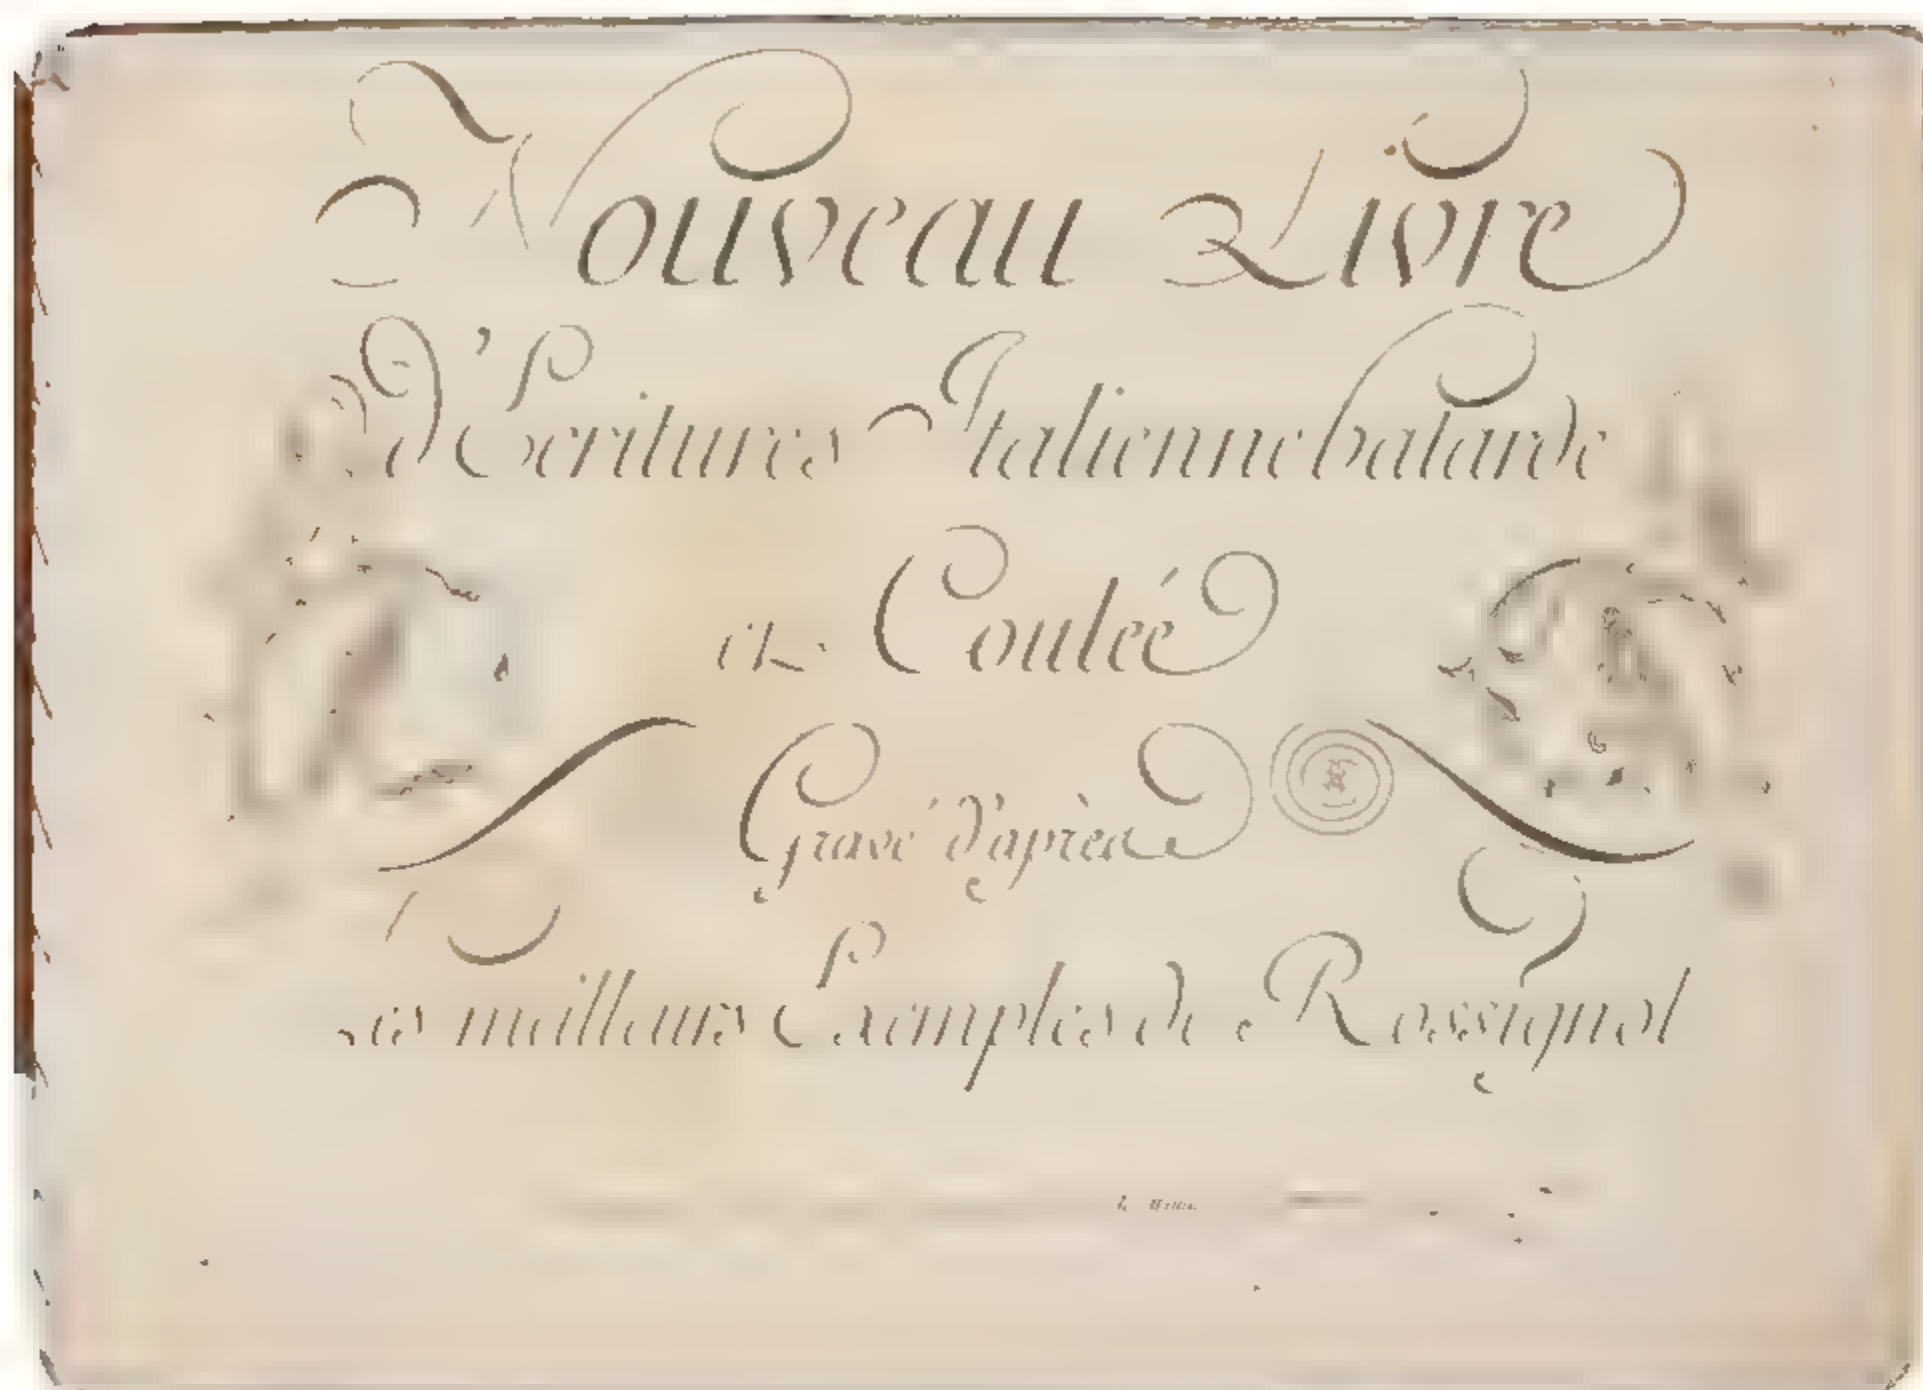 Nouveau Livre
d'Ecritures Italienne batarde
et Coulée
Gravé d'après
Les meilleurs Exemples de Rossignol